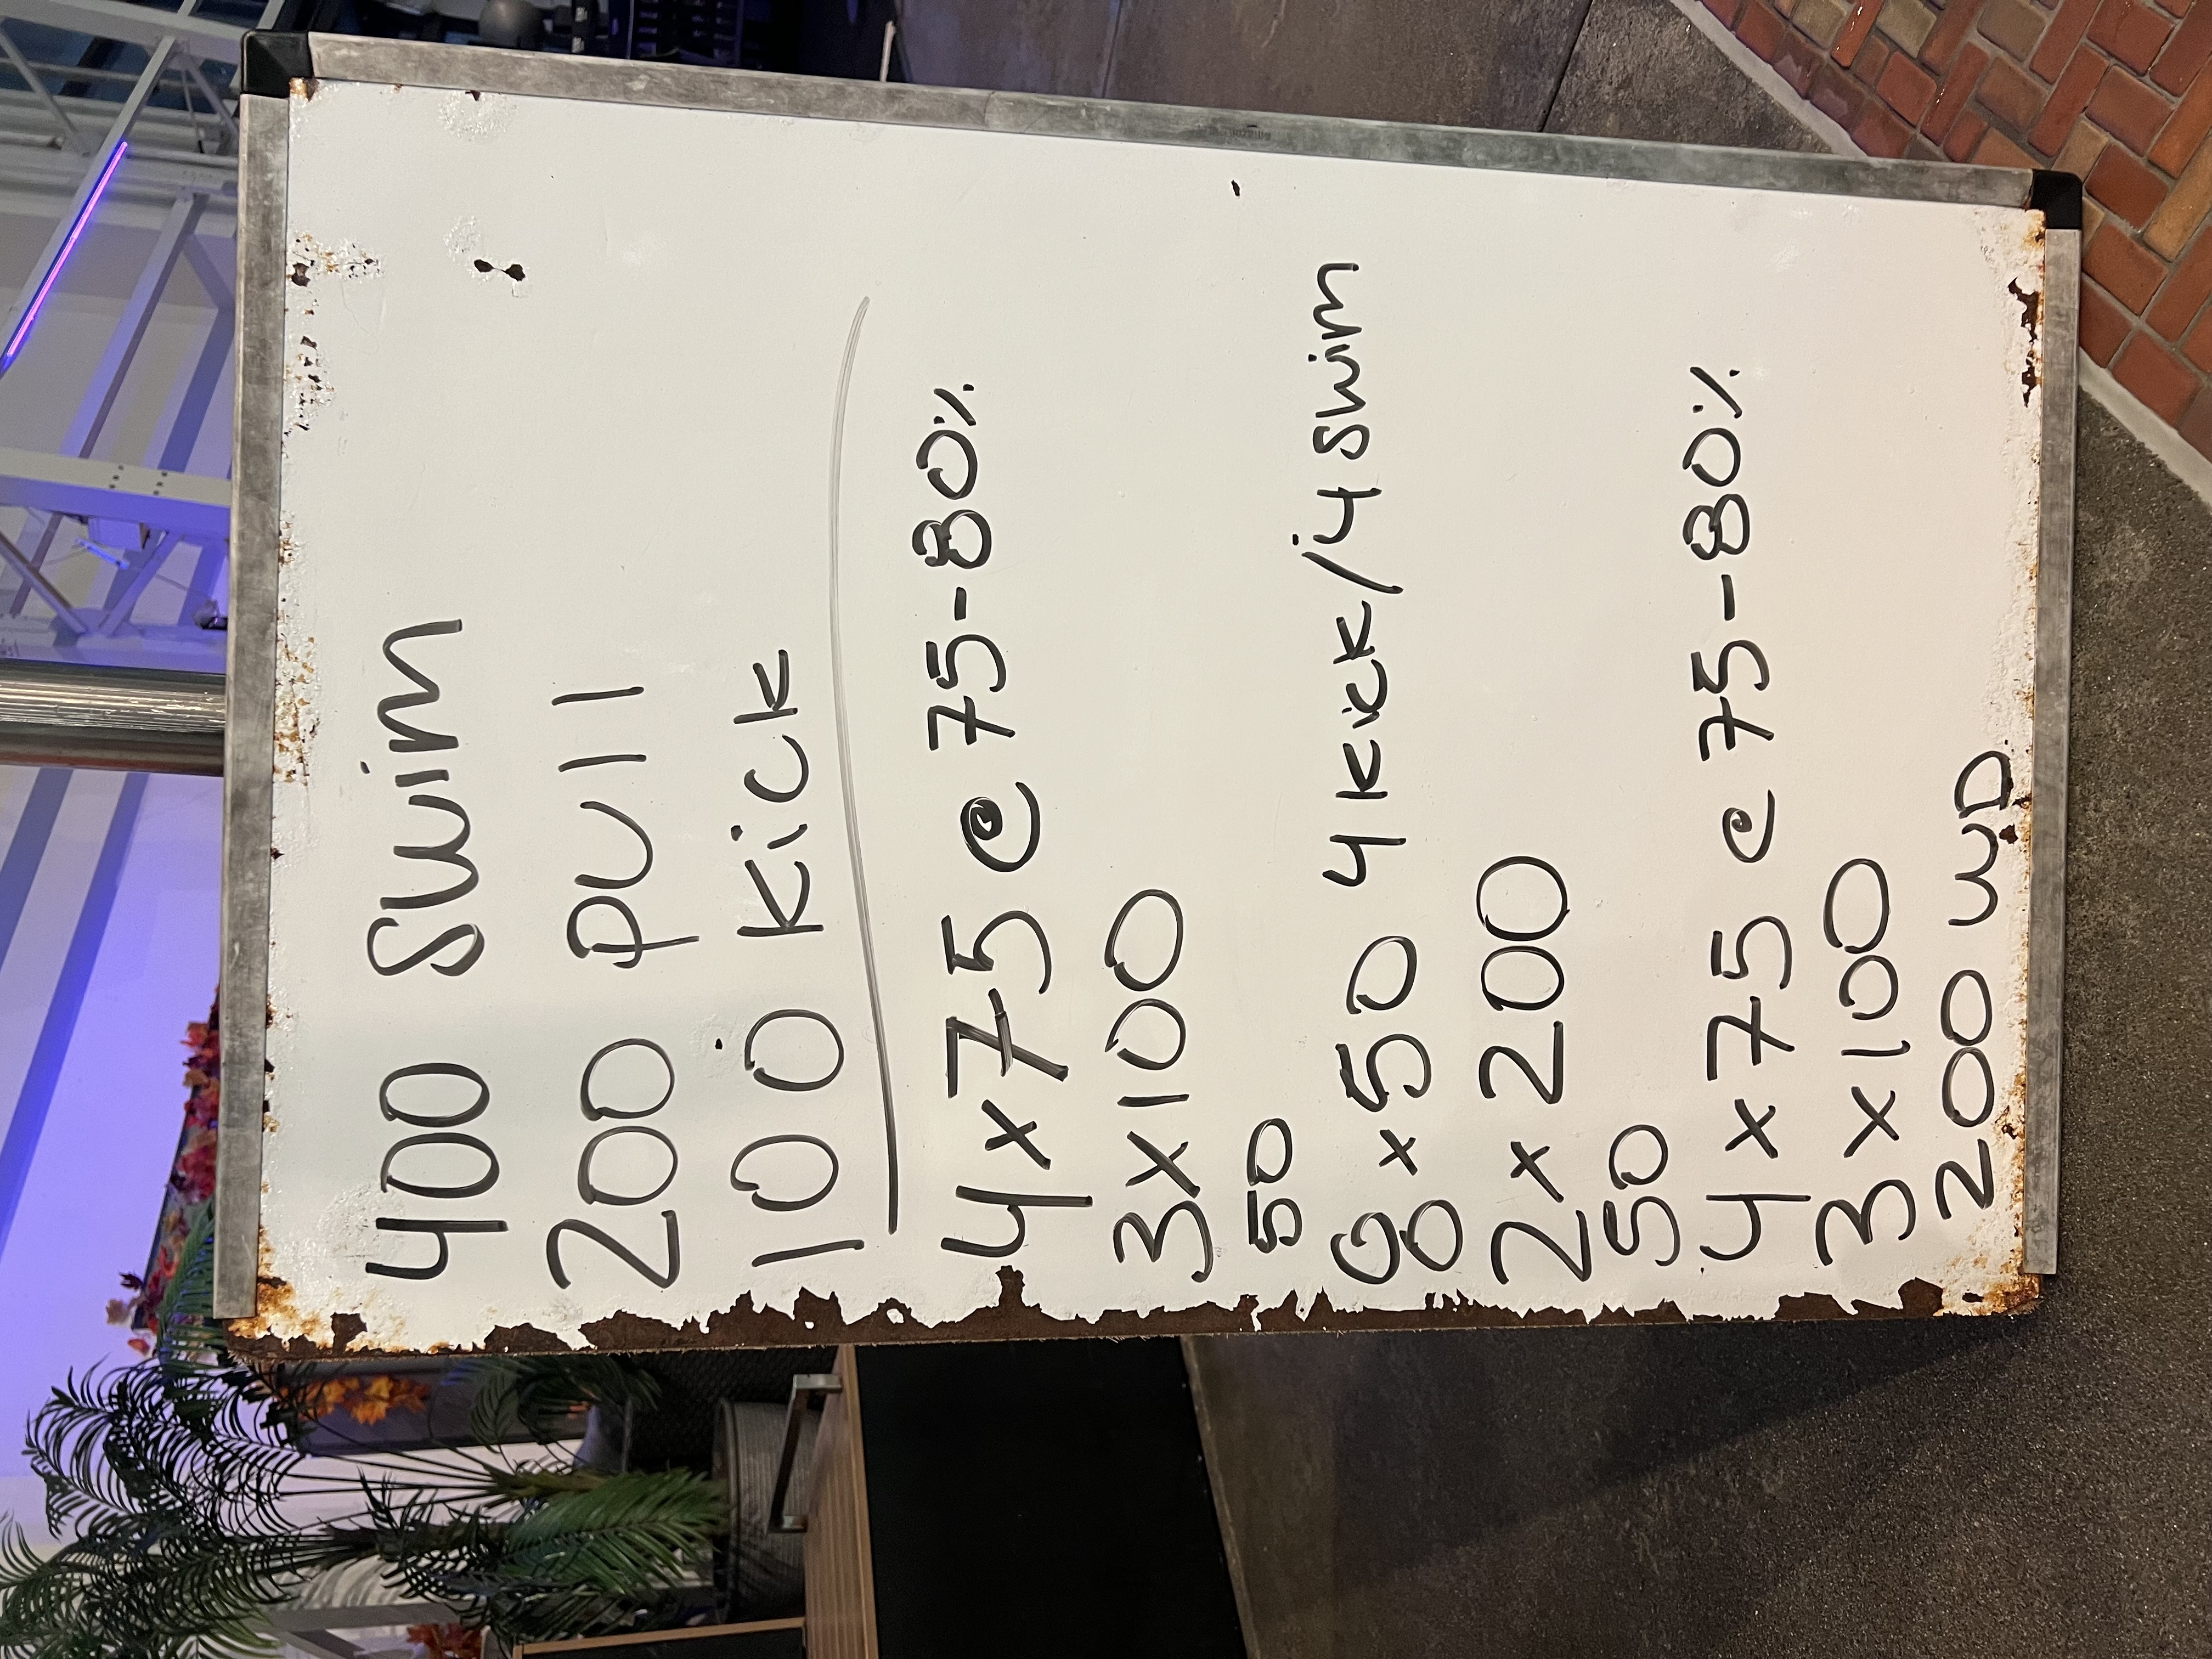 400 Swim
200 pull
100 Kick
4x75 @ 75-80%
3x100
50
8x50 4 kick/4 Swim
2x200
50
4x75 @ 75-80%
3x100
200 WD